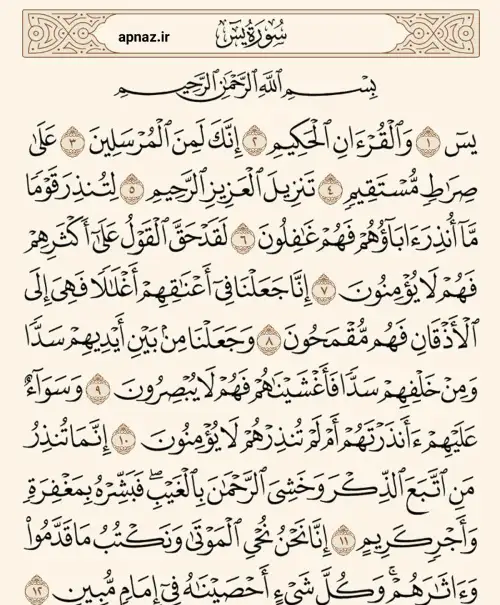 apnaz.ir
سُورَةُ يسٓ
بِسْمِ اللَّهِ الرَّحْمَٰنِ الرَّحِيمِ
يسٓ ١ وَالْقُرْءَانِ الْحَكِيمِ ٢ إِنَّكَ لَمِنَ الْمُرْسَلِينَ ٣ عَلَىٰ
صِرَاطٍ مُّسْتَقِيمٍ ٤ تَنزِيلَ الْعَزِيزِ الرَّحِيمِ ٥ لِتُنذِرَ قَوْمًا
مَّآ أُنذِرَ ءَابَآؤُهُمْ فَهُمْ غَٰفِلُونَ ٦ لَقَدْ حَقَّ الْقَوْلُ عَلَىٰٓ أَكْثَرِهِمْ
فَهُمْ لَا يُؤْمِنُونَ ٧ إِنَّا جَعَلْنَا فِىٓ أَعْنَٰقِهِمْ أَغْلَٰلًا فَهِىَ إِلَى
الْأَذْقَانِ فَهُم مُّقْمَحُونَ ٨ وَجَعَلْنَا مِنۢ بَيْنِ أَيْدِيهِمْ سَدًّا
وَمِنْ خَلْفِهِمْ سَدًّا فَأَغْشَيْنَٰهُمْ فَهُمْ لَا يُبْصِرُونَ ٩ وَسَوَآءٌ
عَلَيْهِمْ ءَأَنذَرْتَهُمْ أَمْ لَمْ تُنذِرْهُمْ لَا يُؤْمِنُونَ ١٠ إِنَّمَا تُنذِرُ
مَنِ اتَّبَعَ الذِّكْرَ وَخَشِىَ الرَّحْمَٰنَ بِالْغَيْبِ ۖ فَبَشِّرْهُ بِمَغْفِرَةٍ
وَأَجْرٍ كَرِيمٍ ١١ إِنَّا نَحْنُ نُحْىِ الْمَوْتَىٰ وَنَكْتُبُ مَا قَدَّمُوا۟
وَءَاثَٰرَهُمْ ۚ وَكُلَّ شَىْءٍ أَحْصَيْنَٰهُ فِىٓ إِمَامٍ مُّبِينٍ ١٢